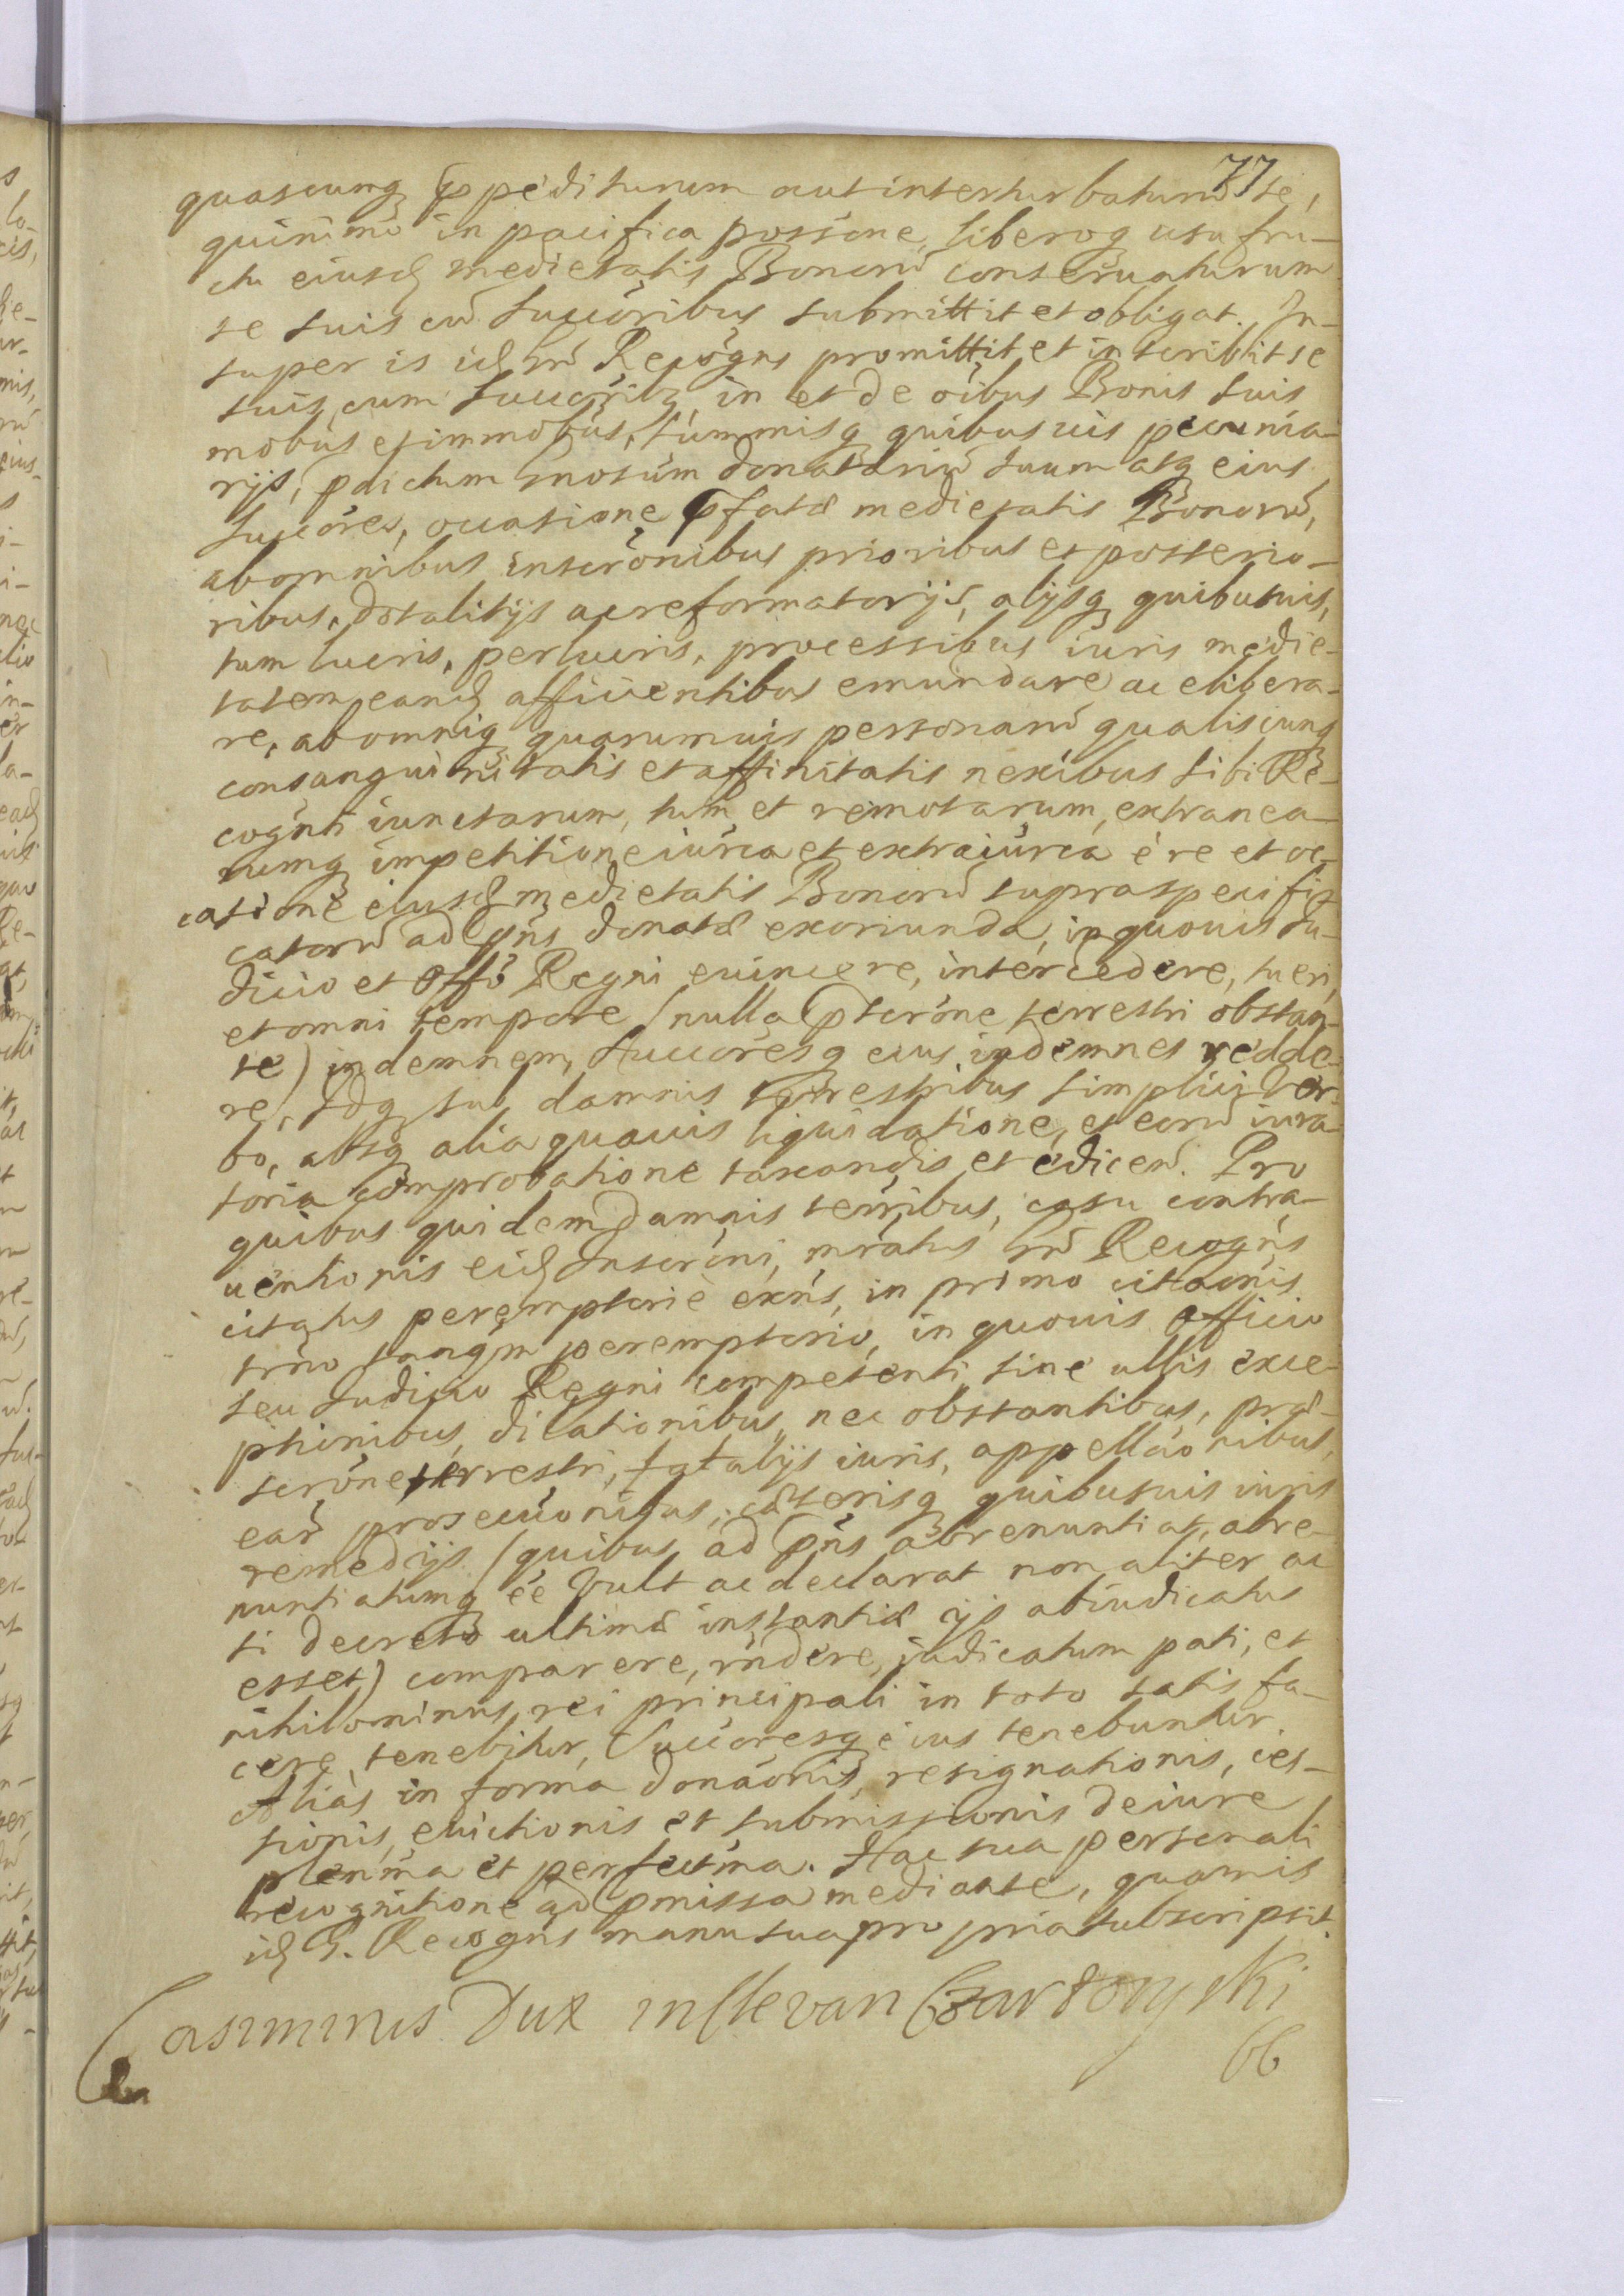 77
quascunq́ p̃pediturum aut interturbaturũ se,
quinimò in pacifica possióne, liberoq́ usu fru-
ctu eiusđ medietatis Bonorũ conseruaturum
se suis cũ Succóribus submittit et obligat. In-
super is idđ Recógns promittit et inscribit se
suisq́ cum Succórib́ in et de óibus Bonis suis
mobús et immobús, summisq́ quibusuis pecunia-
rijs, pdictum Donatariũ suum atq́ eius
Succóres, occasione p̃fatæ medietatis Bonorũ,
ab omnibus inscrónibus prioribus et posterio-
ribus, dotalitijs ac reformatorijs, alijsq́ quibusuis,
tum lucris, perlucris, processibus iuris medie-
tatem eanđ afficientibus emundare ac elibera-
re, ab omniq́ quarumuis personarũ qualiscunq́
consanguinitatis et affinitatis nexibus sibi Re-
cogńti iunctarum, tum et remotarum, extranea-
rumq́ impetitione iúrea et extraiúrea è re et oc-
casione eiusđ medietatis Bonorũ supraspecifi-
catorũ ad p̃ns donatæ exoriunda, in quouis Iu-
dicio et Offó Regni euincere, intercedere, tueri,
et omni tempore (nulla p̃scrióne terrestri obstan-
te) indemnem, Succóresq́ eius indemnes redde-
re, Idq́ sub damnis terrestribus simplici ver-
bo, absq́ alia quauis liquidatione, et eorũ iura-
toria comprobatione taxandis et édiceń. Pro
quibus quidem damnis terribus, casu contra-
uentionis eiđ Inscróni, mratus Recogńs
citatus peremptorie exńs, in primo citaónis
trno tanq́m peremptorio, in quouis Officio
seu Iudicio Regni competenti, sine ullis exce-
ptionibus, dilationibus, nec obstantibus, præ-
scrióne terrestri, fatalijs iuris, appellaónibus,
eaŕ prosecuónibus, cæterisq́ quibusuis iuris
remedijs (quibus ad p̃ns abrenuntiat, abre-
nuntiatumq́ éé vult ac declarat non aliter ac
si decreto ultimæ instantiæ ijs abiudicatus
esset) comparere, rńdere, iudicatum pati, et
nihilominus rei principali in toto satis fa-
cere tenebitur, Succóresq́ eius tenebuntur.
Aliàs in forma donaónis, resignationis, ces-
sionis, euictionis et submissionis de iure
plenma et perfectma. Hac sua personali
recognitione ad p̃missa mediante, quam is
idđ G. Recogńs manu sua propria subscripsit.
Casimirus Dux in Clevan Czartoryski